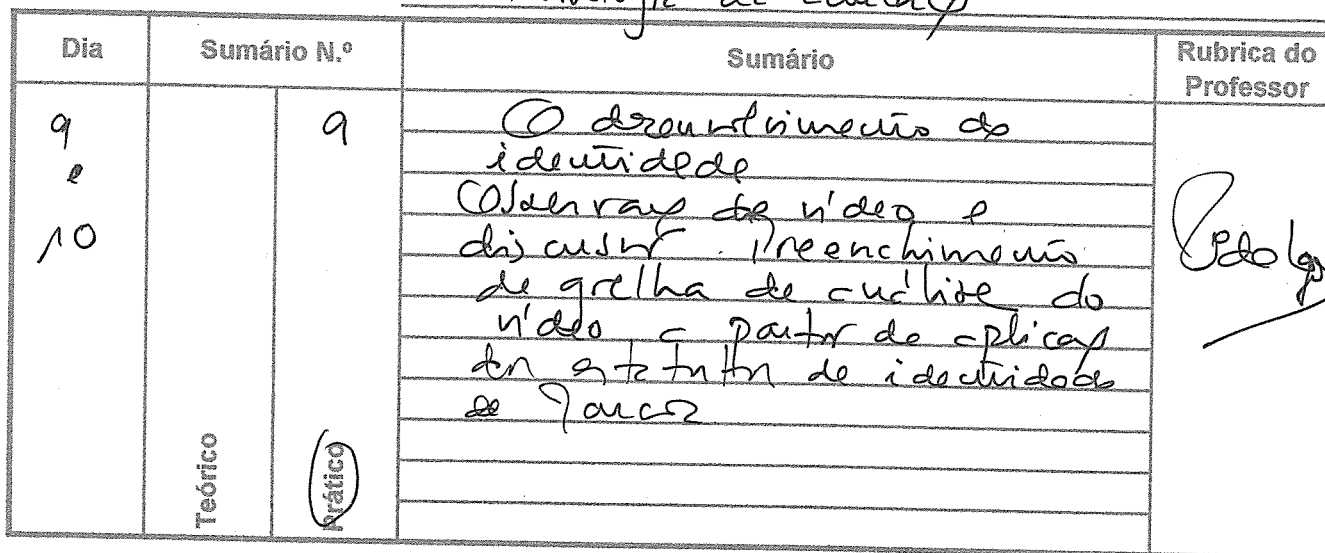 Dia Sumário N.º Sumário Rubrica do Professor
9 e 10
9
O desenvolvimento da
identidade
Observação de vídeo e
discussão. Preenchimento
de grelha de análise do
vídeo a partir da aplicação
dos estatutos de identidade
de Marcia
Teórico
Prático